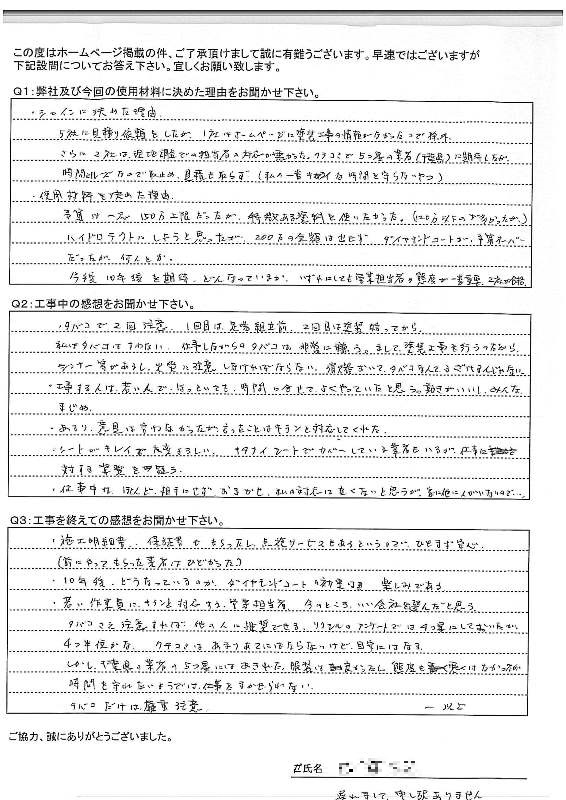 この度はホームページ掲載の件、ご了承頂けまして誠に有難うございます。早速ではございますが
下記設問についてお答え下さい。宜しくお願い致します。
Q1：弊社及び今回の使用材料に決めた理由をお聞かせ下さい。
・シャインに決めた理由
5社に見積り依頼をしたが、1社はホームページに塗装工事の情報が
さらに2社は現地調査での担当者の対応が悪かった。クチコミで5つ星の業者(千葉県)に期待したが
時間にルーズなので取止め、見積もとらず (私の一番キライな時間を守らないやつ)
・使用材料を決めた理由
予算は 150万
ハイドロテクトにしようと思ったが、200万の金額は出せず、ダイヤモンドコートが、予算オーバー
だったが、何とか。
今後10年後を期待、どんなっているか。いずれにしても営業担当者の態度が一番重要、
Q2：工事中の感想をお聞かせ下さい。
・タバコで2回注意、1回目は足場組立前、2回目は塗装始ってから。
私はタバコはすわない。仕事しながらのタバコは非常に嫌う。まして、塗装工事を行うのだから
シンナー等があるし、火気に注意しなければならない。
・工事する人は、若い人で、ほっといても、時間に合せて、よくやっていたと思う。動きがいいし、みんな
まじめ。
・あまり、意見は言わなかったが、言ったことはキチンと対応してくれた。
・シートがキレイで大変よろしい。キタナイシートでカバーしている業者もいるが、仕事に
対する姿勢を疑う。
・仕事中は、ほとんど、相手にせず、おまかせ、私の対応は良くないと思うが、
Q3：工事を終えての感想をお聞かせ下さい。
・施工明細書、保証書をもらったし、点検サービスもあるというので、ひとまず安心。
(前にやってもらった業者はひどかった)
・10年後、どうなっているのか、ダイヤモンドコートの効果は 楽しみである
・若い作業員にキチンと対応する、営業担当者、今のところ、いい会社を選んだと思う
タバコさえ注意すれば、他の人に推奨できる、リフォームのアンケートでは4つ星にしておいたが、
4つ半位かな。クチコミは、あまりあてにはならないけど、目安にはなる。
しかし、千葉県の業者の5つ星にはあきれた、服装は 態度も悪くはなかったが
時間を守れないようでは、仕事をまかせられない。
タバコだけは厳重注意 ー以上
ご協力、誠にありがとうございました。
氏名
遅れまして、申し訳ありません